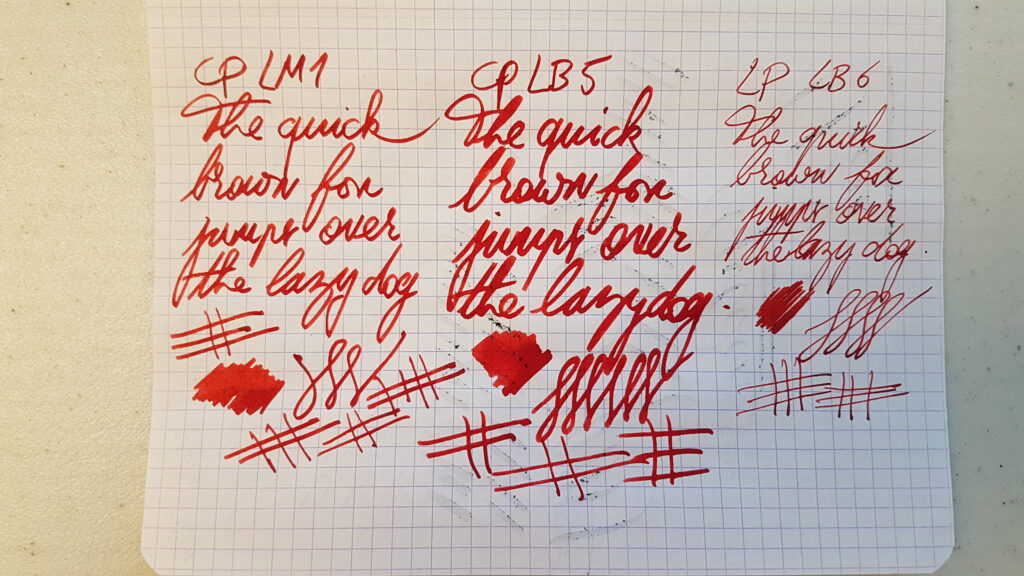 CP LM1
The quick
brown fox
jumps over
the lazy dog
CP LB5
The quick
brown fox
jumps over
the lazy dog.
LP LB6
The quick
brown fox
jumps over
the lazy dog.